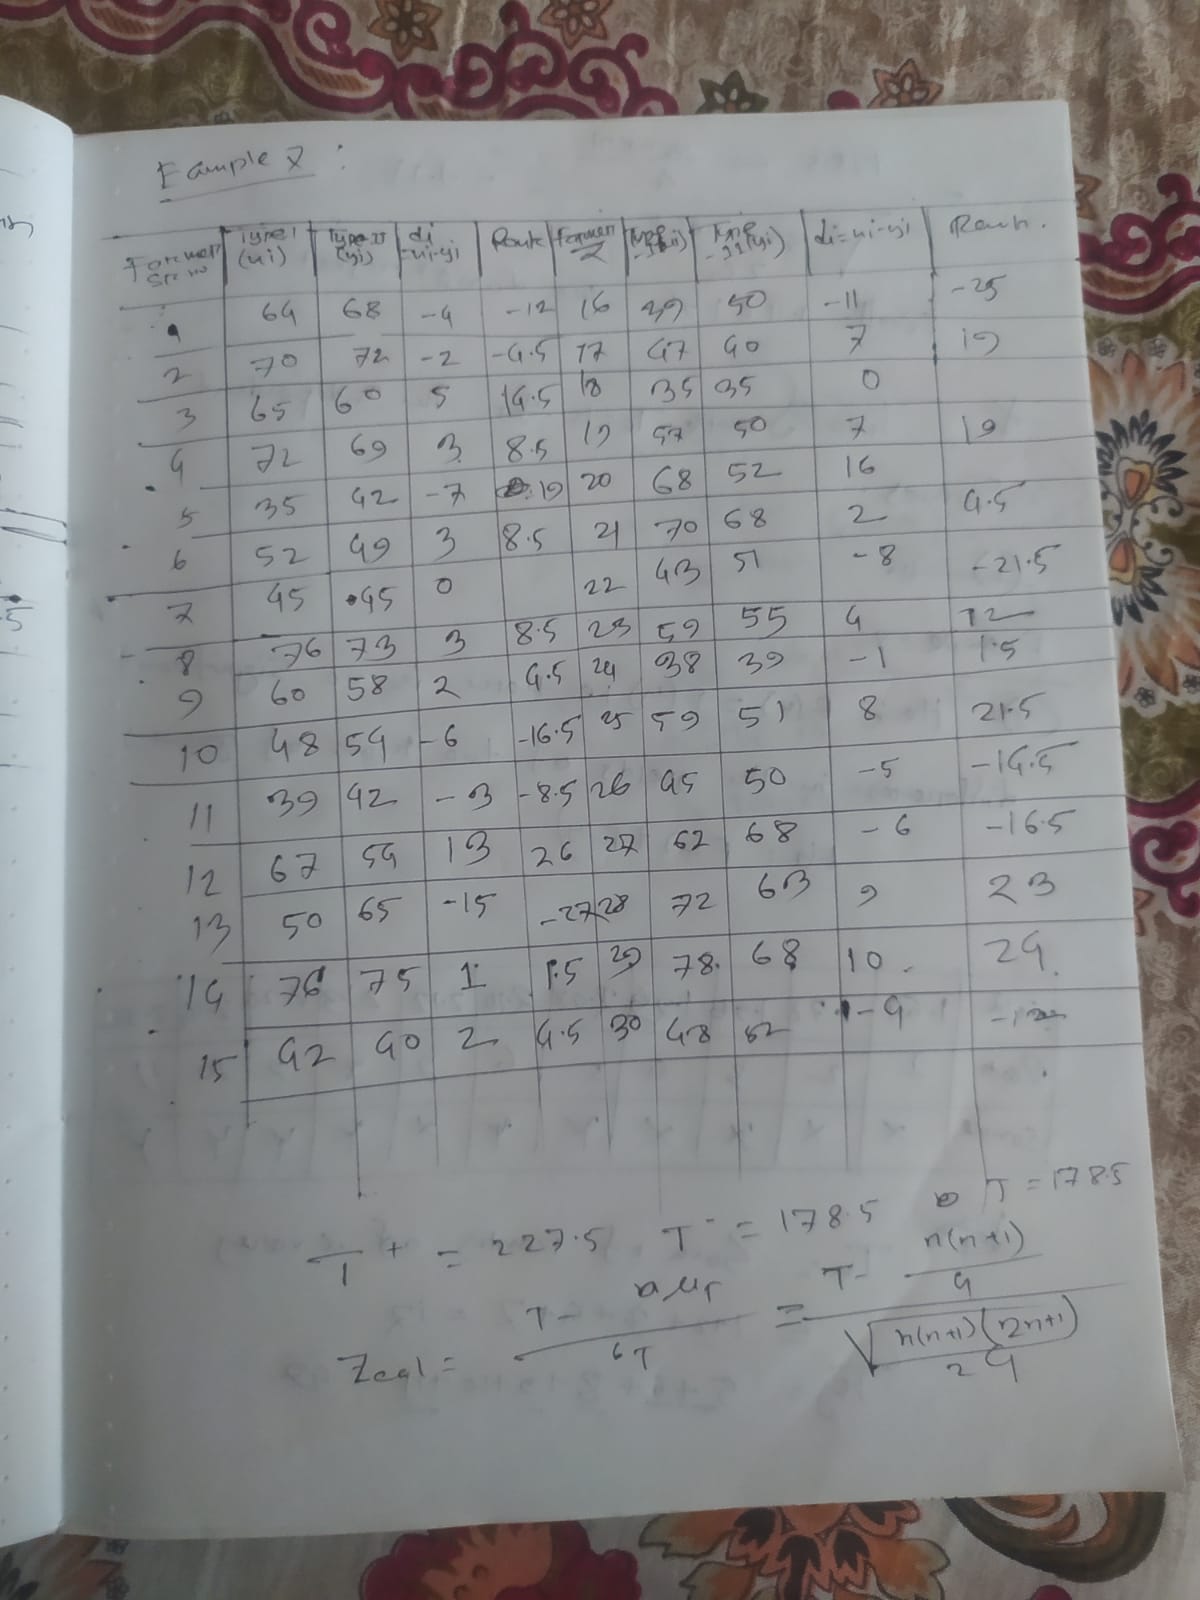 Example 7 :
Farmer Sr. no | Type I (xi) | Type II (yi) | di = xi-yi | Rank | Farmer | Type I (xi) | Type II (yi) | di = xi-yi | Rank.
1 64 68 -4 -12 16 39 50 -11 -25
2 70 72 -2 -4.5 17 47 40 7 19
3 65 60 5 14.5 18 35 35 0
4 72 69 3 8.5 19 57 50 7 19
5 35 42 -7 19 20 68 52 16
6 52 49 3 8.5 21 70 68 2 4.5
7 45 45 0 22 43 51 -8 -21.5
8 76 73 3 8.5 23 59 55 4 12
9 60 58 2 4.5 24 38 39 -1 1.5
10 48 54 -6 -16.5 25 59 51 8 21.5
11 39 42 -3 -8.5 26 45 50 -5 -14.5
12 67 54 13 26 27 62 68 -6 -16.5
13 50 65 -15 -27 28 72 63 9 23
14 76 75 1 1.5 29 78 68 10 24
15 42 40 2 4.5 30 48 52 -4
T+ = 227.5 T- = 178.5 T = 178.5
Zcal = T - μT / σT = T - n(n+1)/4 / √n(n+1)(2n+1)/24